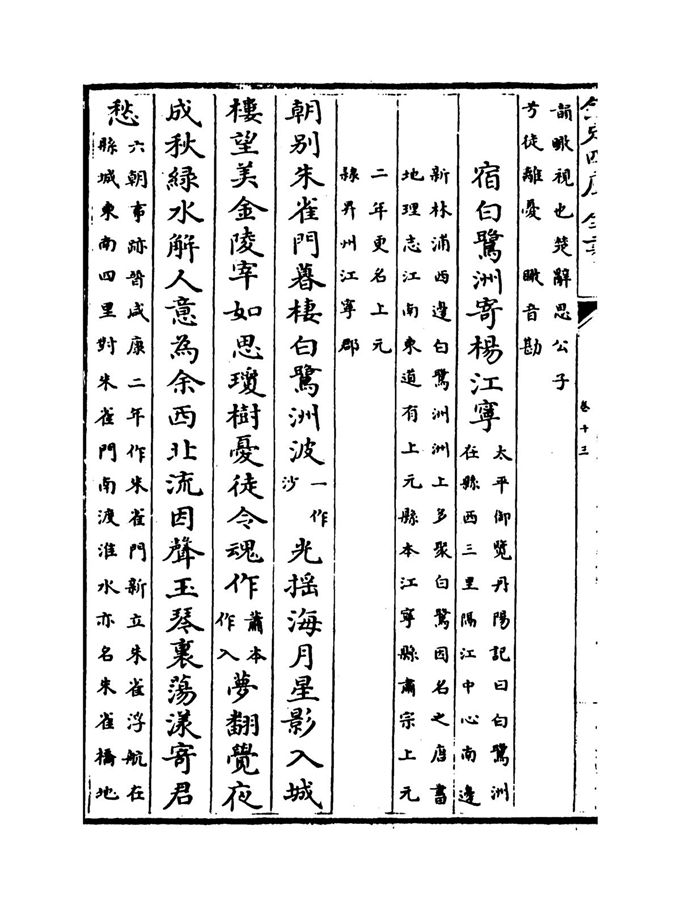 欽定四庫全書
卷十三
韻瞰視也楚辭思公子
兮徒離憂　瞰音勘
宿白鷺洲寄楊江寧
太平御覽丹陽記曰白鷺洲
在縣西三里隔江中心南邊
新林浦西邊白鷺洲洲上多聚白鷺因名之唐書
地理志江南東道有上元縣本江寧縣肅宗上元
二年更名上元
縣昇州江寧郡
朝別朱雀門暮棲白鷺洲波一作沙光揺海月星影入城
樓望美金陵宰如思瓊樹憂徒令魂作蕭本作入夢翻覺夜
成秋緑水解人意為余西北流因聲玉琴裏蕩漾寄君
愁
六朝事跡晉咸康二年作朱雀門新立朱雀浮航在
縣城東南四里對朱雀門南渡淮水亦名朱雀橋地